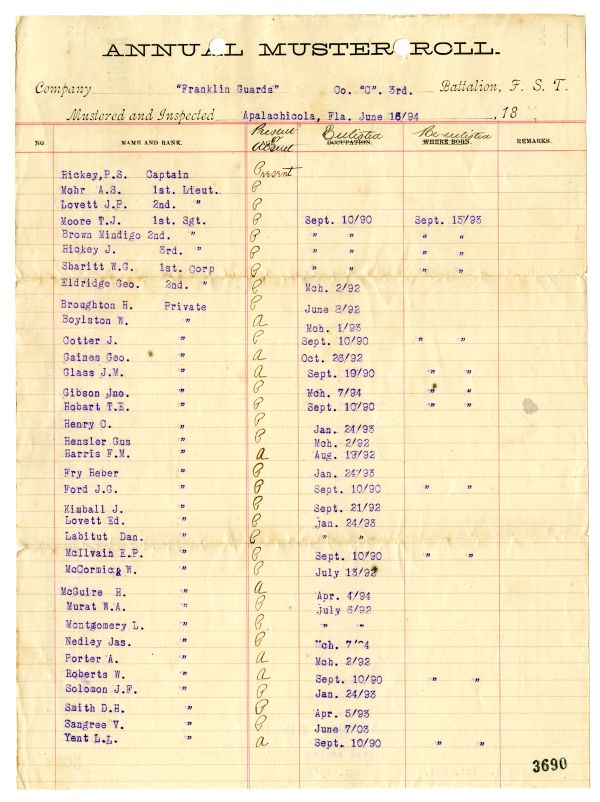 ANNUAL MUSTER ROLL.
Company "Franklin Guards" Co. "C". 3rd. Battalion, F. S. T.
Mustered and Inspected Apalachicola, Fla. June 16/94 , 18
NO. NAME AND RANK. Present or Absent Enlisted OCCUPATION. Re-enlisted WHERE BORN. REMARKS.
Hickey, P.S. Captain Present
Mohr A.S. 1st. Lieut. P
Lovett J.P. 2nd. " P
Moore T.J. 1st. Sgt. P Sept. 10/90 Sept. 15/93
Brown Mindigo 2nd. " P " " " "
Hickey J. 3rd. " P " " " "
Sharitt W.G. 1st. Corp P " " " "
Eldridge Geo. 2nd. " P Mch. 2/92
Broughton H. Private P June 8/92
Boylston W. " a Mch. 1/93
Cotter J. " P Sept. 10/90 " "
Gaines Geo. " a Oct. 26/92
Glass J.M. " a Sept. 10/90 " "
Gibson Jno. " P Mch. 7/94 " "
Hobart T.E. " P Sept. 10/90 " "
Henry O. " P Jan. 24/93
Hensler Gus " P Mch. 2/92
Harris F.M. " a Aug. 19/92
Fry Heber " P Jan. 24/93
Ford J.G. " P Sept. 10/90 " "
Kimball J. " P Sept. 21/92
Lovett Ed. " P Jan. 24/93
Labitut Dan. " P " "
McIlvain E.P. " P Sept. 10/90 " "
McCormick W. " P July 13/92
McGuire H. " a Apr. 4/94
Murat W.A. " P July 6/92
Montgomery L. " P " "
Nedley Jas. " P Mch. 7/94
Porter A. " a Mch. 2/92
Roberts W. " a Sept. 10/90 " "
Solomon J.F. " P Jan. 24/93
Smith D.H. " P Apr. 5/93
Sangree V. " P June 7/03
Yent L.L. " a Sept. 10/90 " "
3690